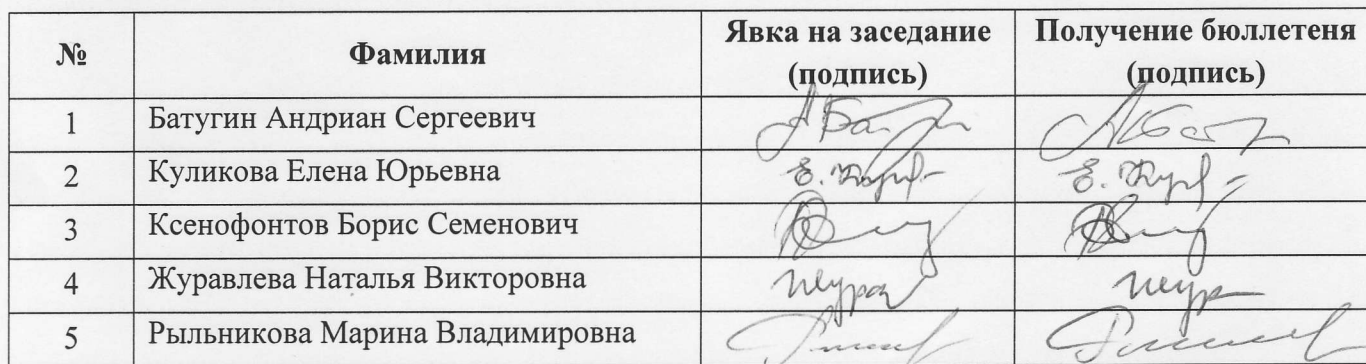 № Фамилия Явка на заседание (подпись) Получение бюллетеня (подпись)
1 Батугин Андриан Сергеевич
2 Куликова Елена Юрьевна
3 Ксенофонтов Борис Семенович
4 Журавлева Наталья Викторовна
5 Рыльникова Марина Владимировна